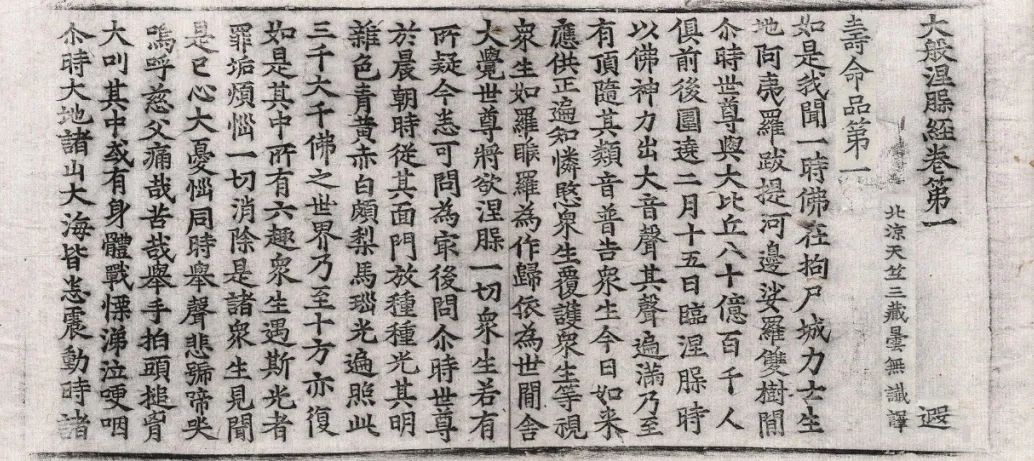 大般涅槃経卷第一　遐
北涼天竺三藏曇無讖譯
壽命品第一
如是我聞一時佛在拘尸城力士生
地阿夷羅跋提河邊娑羅雙樹間
尒時世尊與大比丘八十億百千人
俱前後圍遶二月十五日臨涅槃時
以佛神力出大音聲其聲遍滿乃至
有頂隨其類音普告衆生今日如来
應供正遍知憐愍衆生覆護衆生等視
衆生如羅睺羅為作歸依為世間舍
大覺世尊將欲涅槃一切衆生若有
所疑今悉可問為㝡後問尒時世尊
於晨朝時從其面門放種種光其明
雜色青黄赤白頗梨馬瑙光遍照此
三千大千佛之世界乃至十方亦復
如是其中所有六趣衆生遇斯光者
罪垢煩惱一切消除是諸衆生見聞
是已心大憂惱同時舉聲悲號啼哭
嗚呼慈父痛哉苦哉舉手拍頭搥胷
大叫其中或有身體戰慄涕泣哽咽
尒時大地諸山大海皆悉震動時諸